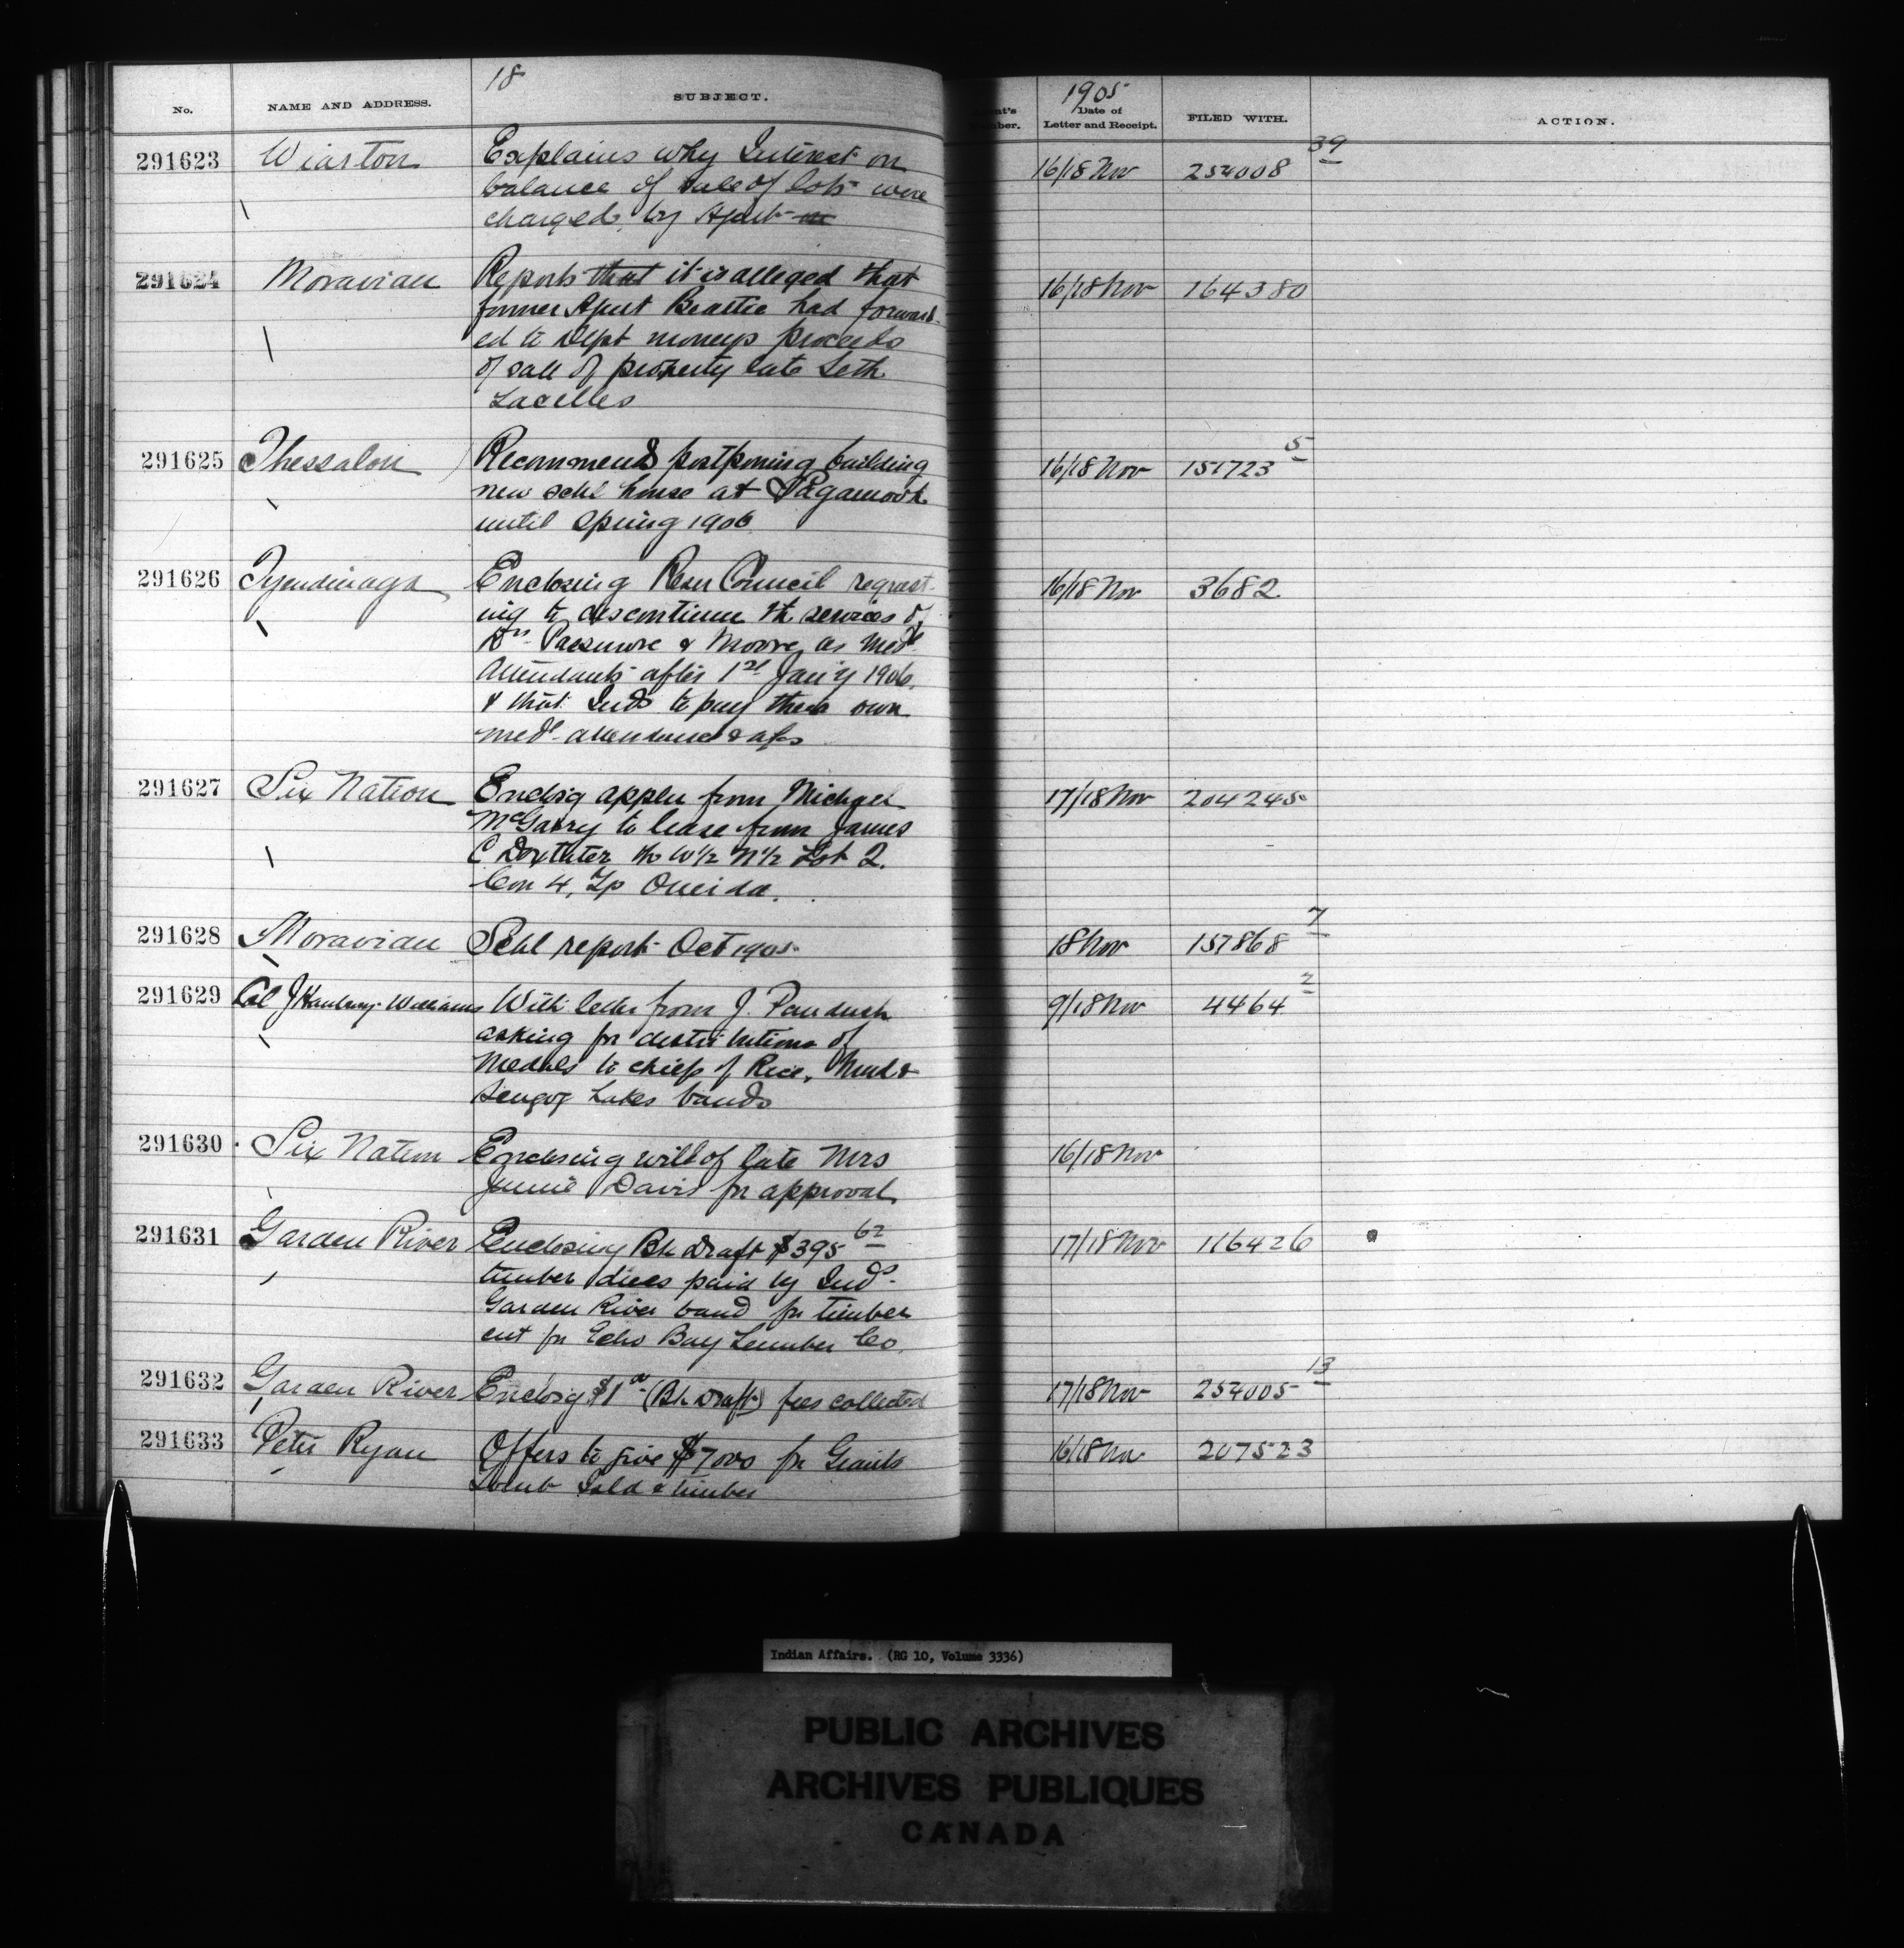 18
No.
NAME AND ADDRESS.
SUBJECT.
1905
Date of
Letter and Receipt.
FILED WITH.
ACTION.
291623 Wiarton Explains why Interest on 16/18 Nov 254008 39
balance of sale of lots were
charged by Agent
291624 Moravian Reports that it is alleged that 16/18 Nov 164380
former Agent Beattie had forward-
ed to Dept moneys proceeds
of sale of property late Seth
Lacelles
291625 Thessalon Recommends postponing building 16/18 Nov 151723 5
new schl house at
until Spring 1906
291626 Tyendinaga Enclosing Resn Council request- 16/18 Nov 3682
ing to discontinue the services of
Drs Passmore & Moore as Medl
Attendants after 1st Jan'y 1906
& that Inds to pay their own
medl attendance
291627 Six Nation Enclosg appln from Michael 17/18 Nov 204245
McGarry to lease from James
C Doxtater the W½ N½ Lot 2.
Con 4, Tp Oneida.
291628 Moravian Schl report Oct 1905 18 Nov 157868 7
291629 Col J Hanbury-Williams With letter from J. Paudash 9/18 Nov 4464 2
asking for distributions of
Medals to chiefs of Rice, Mud &
Scugog Lakes bands
291630 Six Nation Enclosing will of late Mrs 16/18 Nov
Jennie Davis for approval
291631 Garden River Enclosing Bk Draft $395 62 17/18 Nov 116426
timber dues paid by Inds
Garden River band for timber
cut for Echo Bay Lumber Co.
291632 Garden River Enclosg $1 00 (Bk Draft) fees collected 17/18 Nov 254005 13
291633 Peter Ryan Offers to give $7000 for Giants 16/18 Nov 207523
Tomb Isld & timber
Indian Affairs. (RG 10, Volume 3336)
PUBLIC ARCHIVES
ARCHIVES PUBLIQUES
CANADA